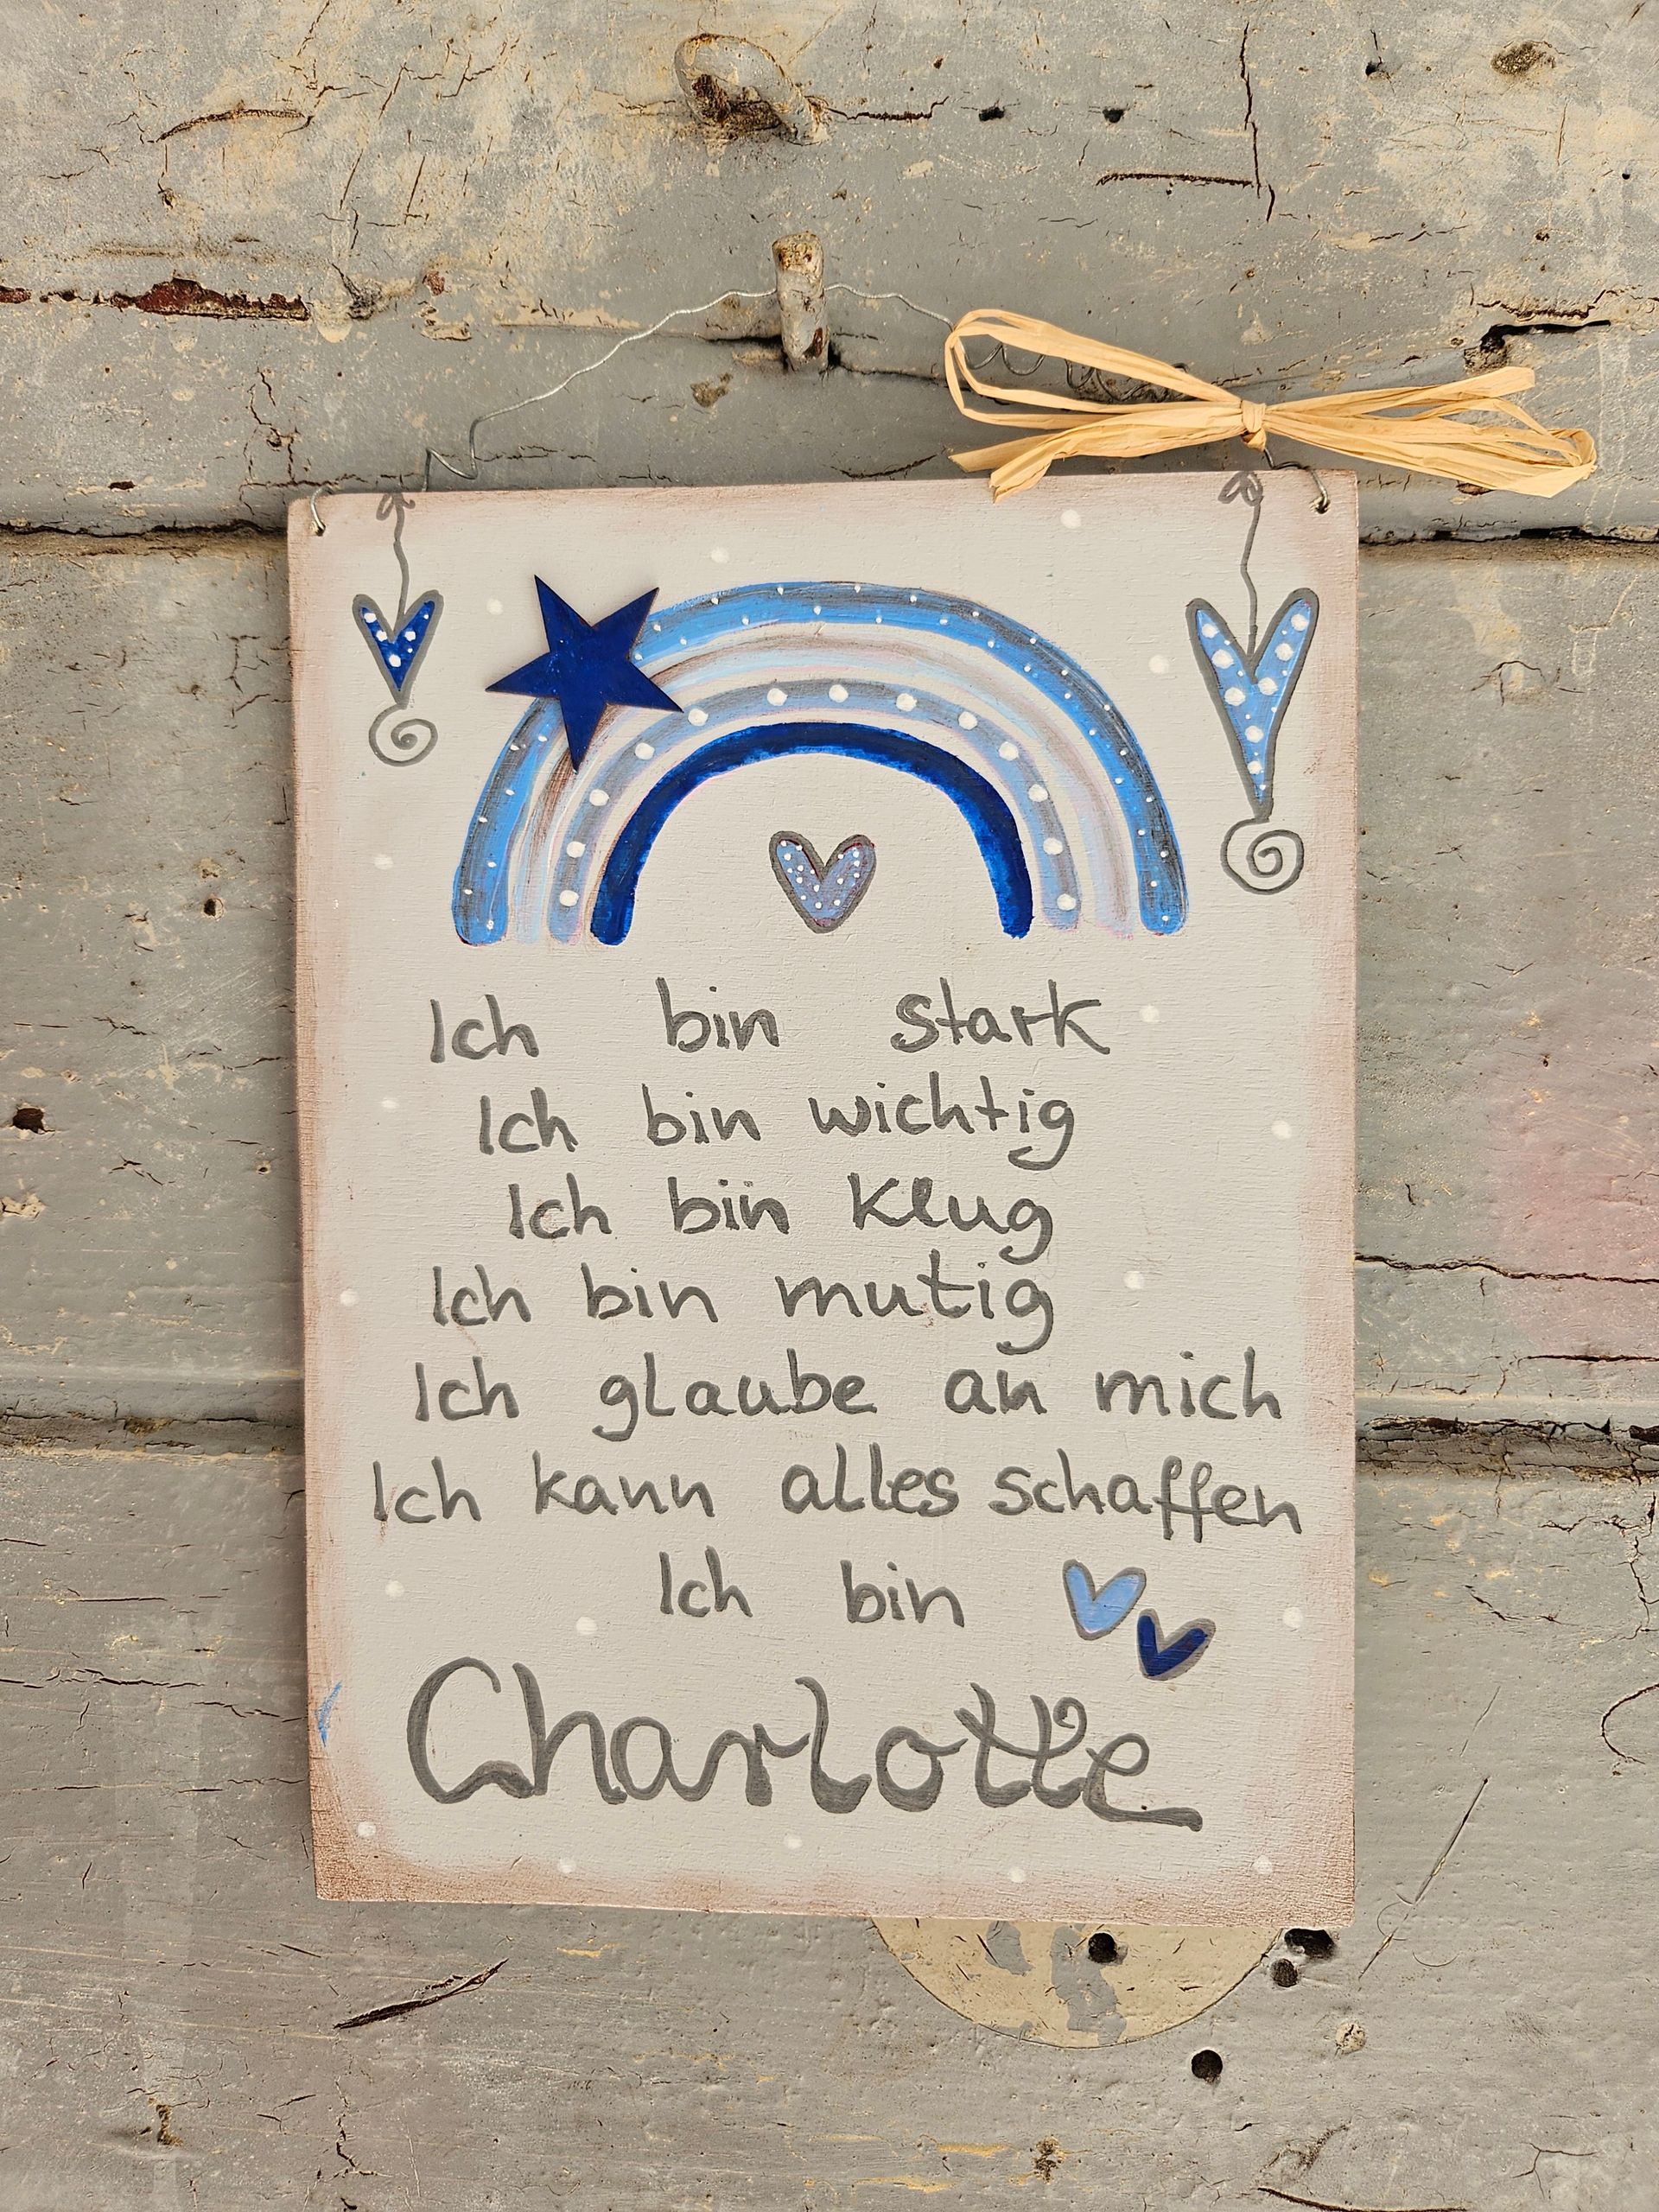 Ich bin stark
Ich bin wichtig
Ich bin klug
Ich bin mutig
Ich glaube an mich
Ich kann alles schaffen
Ich bin
Charlotte